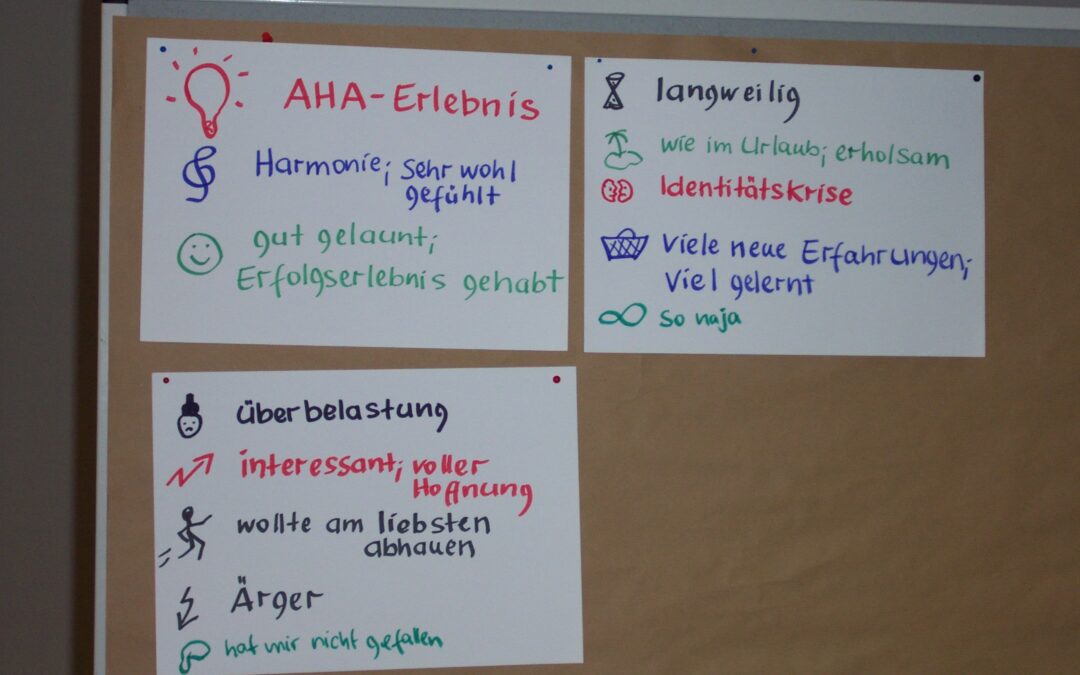 AHA-Erlebnis
Harmonie; Sehr wohl
gefühlt
gut gelaunt;
Erfolgserlebnis gehabt
langweilig
wie im Urlaub; erholsam
Identitätskrise
Viele neue Erfahrungen;
Viel gelernt
so naja
überbelastung
interessant; voller
Hoffnung
wollte am liebsten
abhauen
Ärger
hat mir nicht gefallen